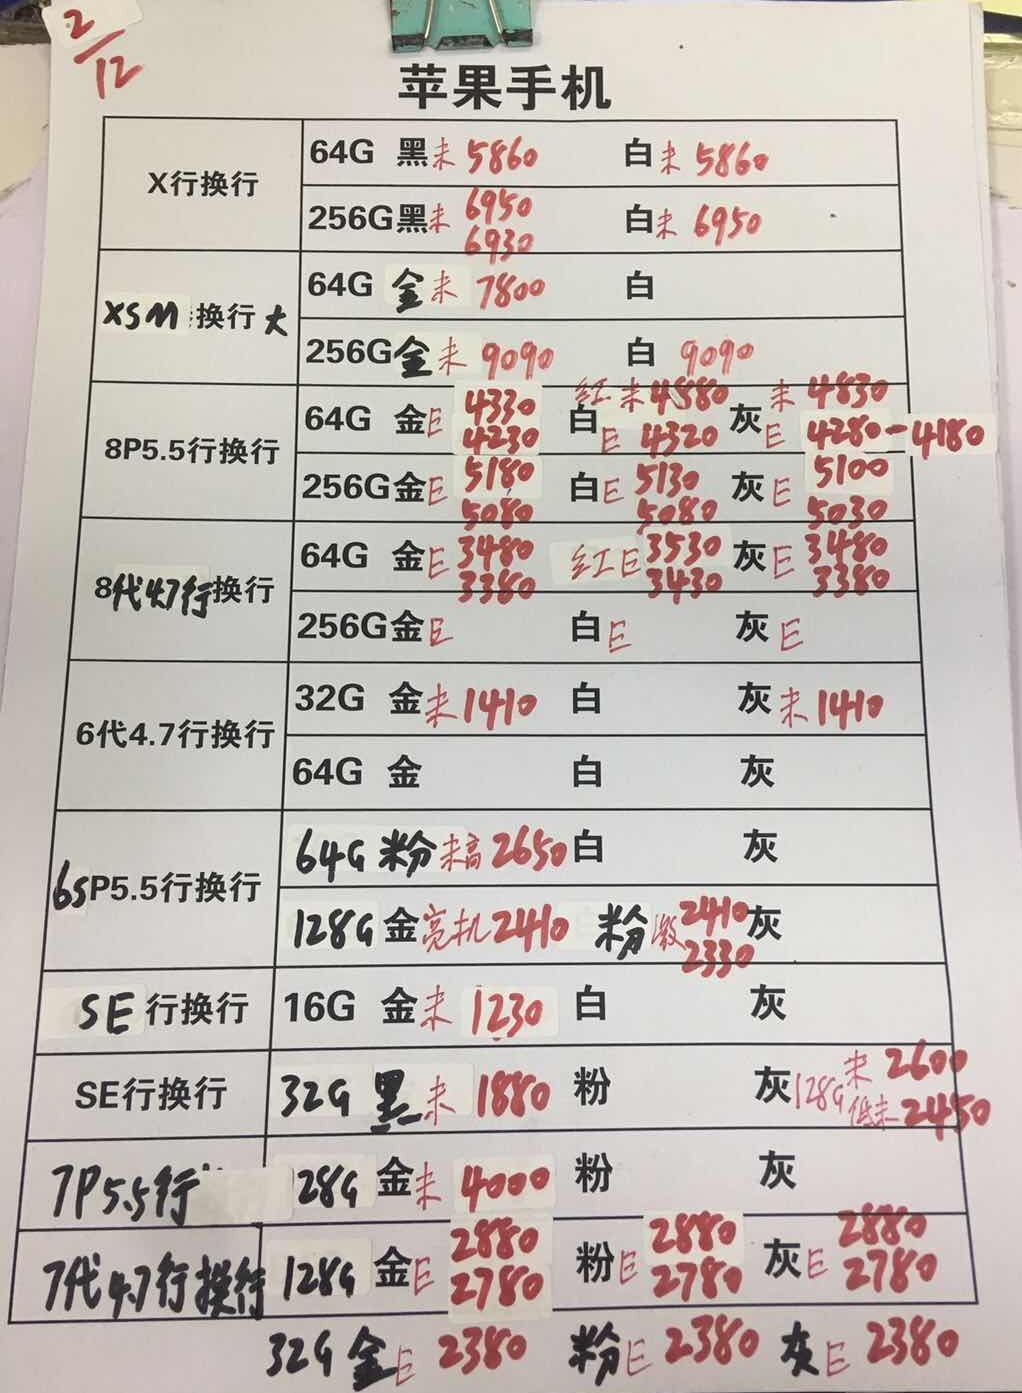 2/12
苹果手机
X行换行
64G 黑未 5860 白未 5860
256G黑未 6950 白未 6950
6930
XSM 换行大
64G 金未 7800 白
256G金未 9090 白 9090
8P5.5行换行
红未4880 未 4830
64G 金E 4330 白E 4320 灰E 4280-4180
4230
256G金E 5180 白E 5130 灰E 5100
5080 5080 5030
8代4.7行换行
64G 金E 3480 红E 3530 灰E 3480
3380 3430 3380
256G金E 白E 灰E
6代4.7行换行
32G 金未1410 白 灰未1410
64G 金 白 灰
6SP5.5行换行
64G 粉未高2650 白 灰
128G 金亮机2410 粉激2410 灰
2330
SE行换行
16G 金未 1230 白 灰
SE行换行
32G 黑未 1880 粉 灰128G未 2600
低未2450
7P5.5行
128G 金未 4000 粉 灰
7代4.7行换行
128G 金E 2880 粉E 2880 灰E 2880
2780 2780 2780
32G 金E 2380 粉E 2380 灰E 2380